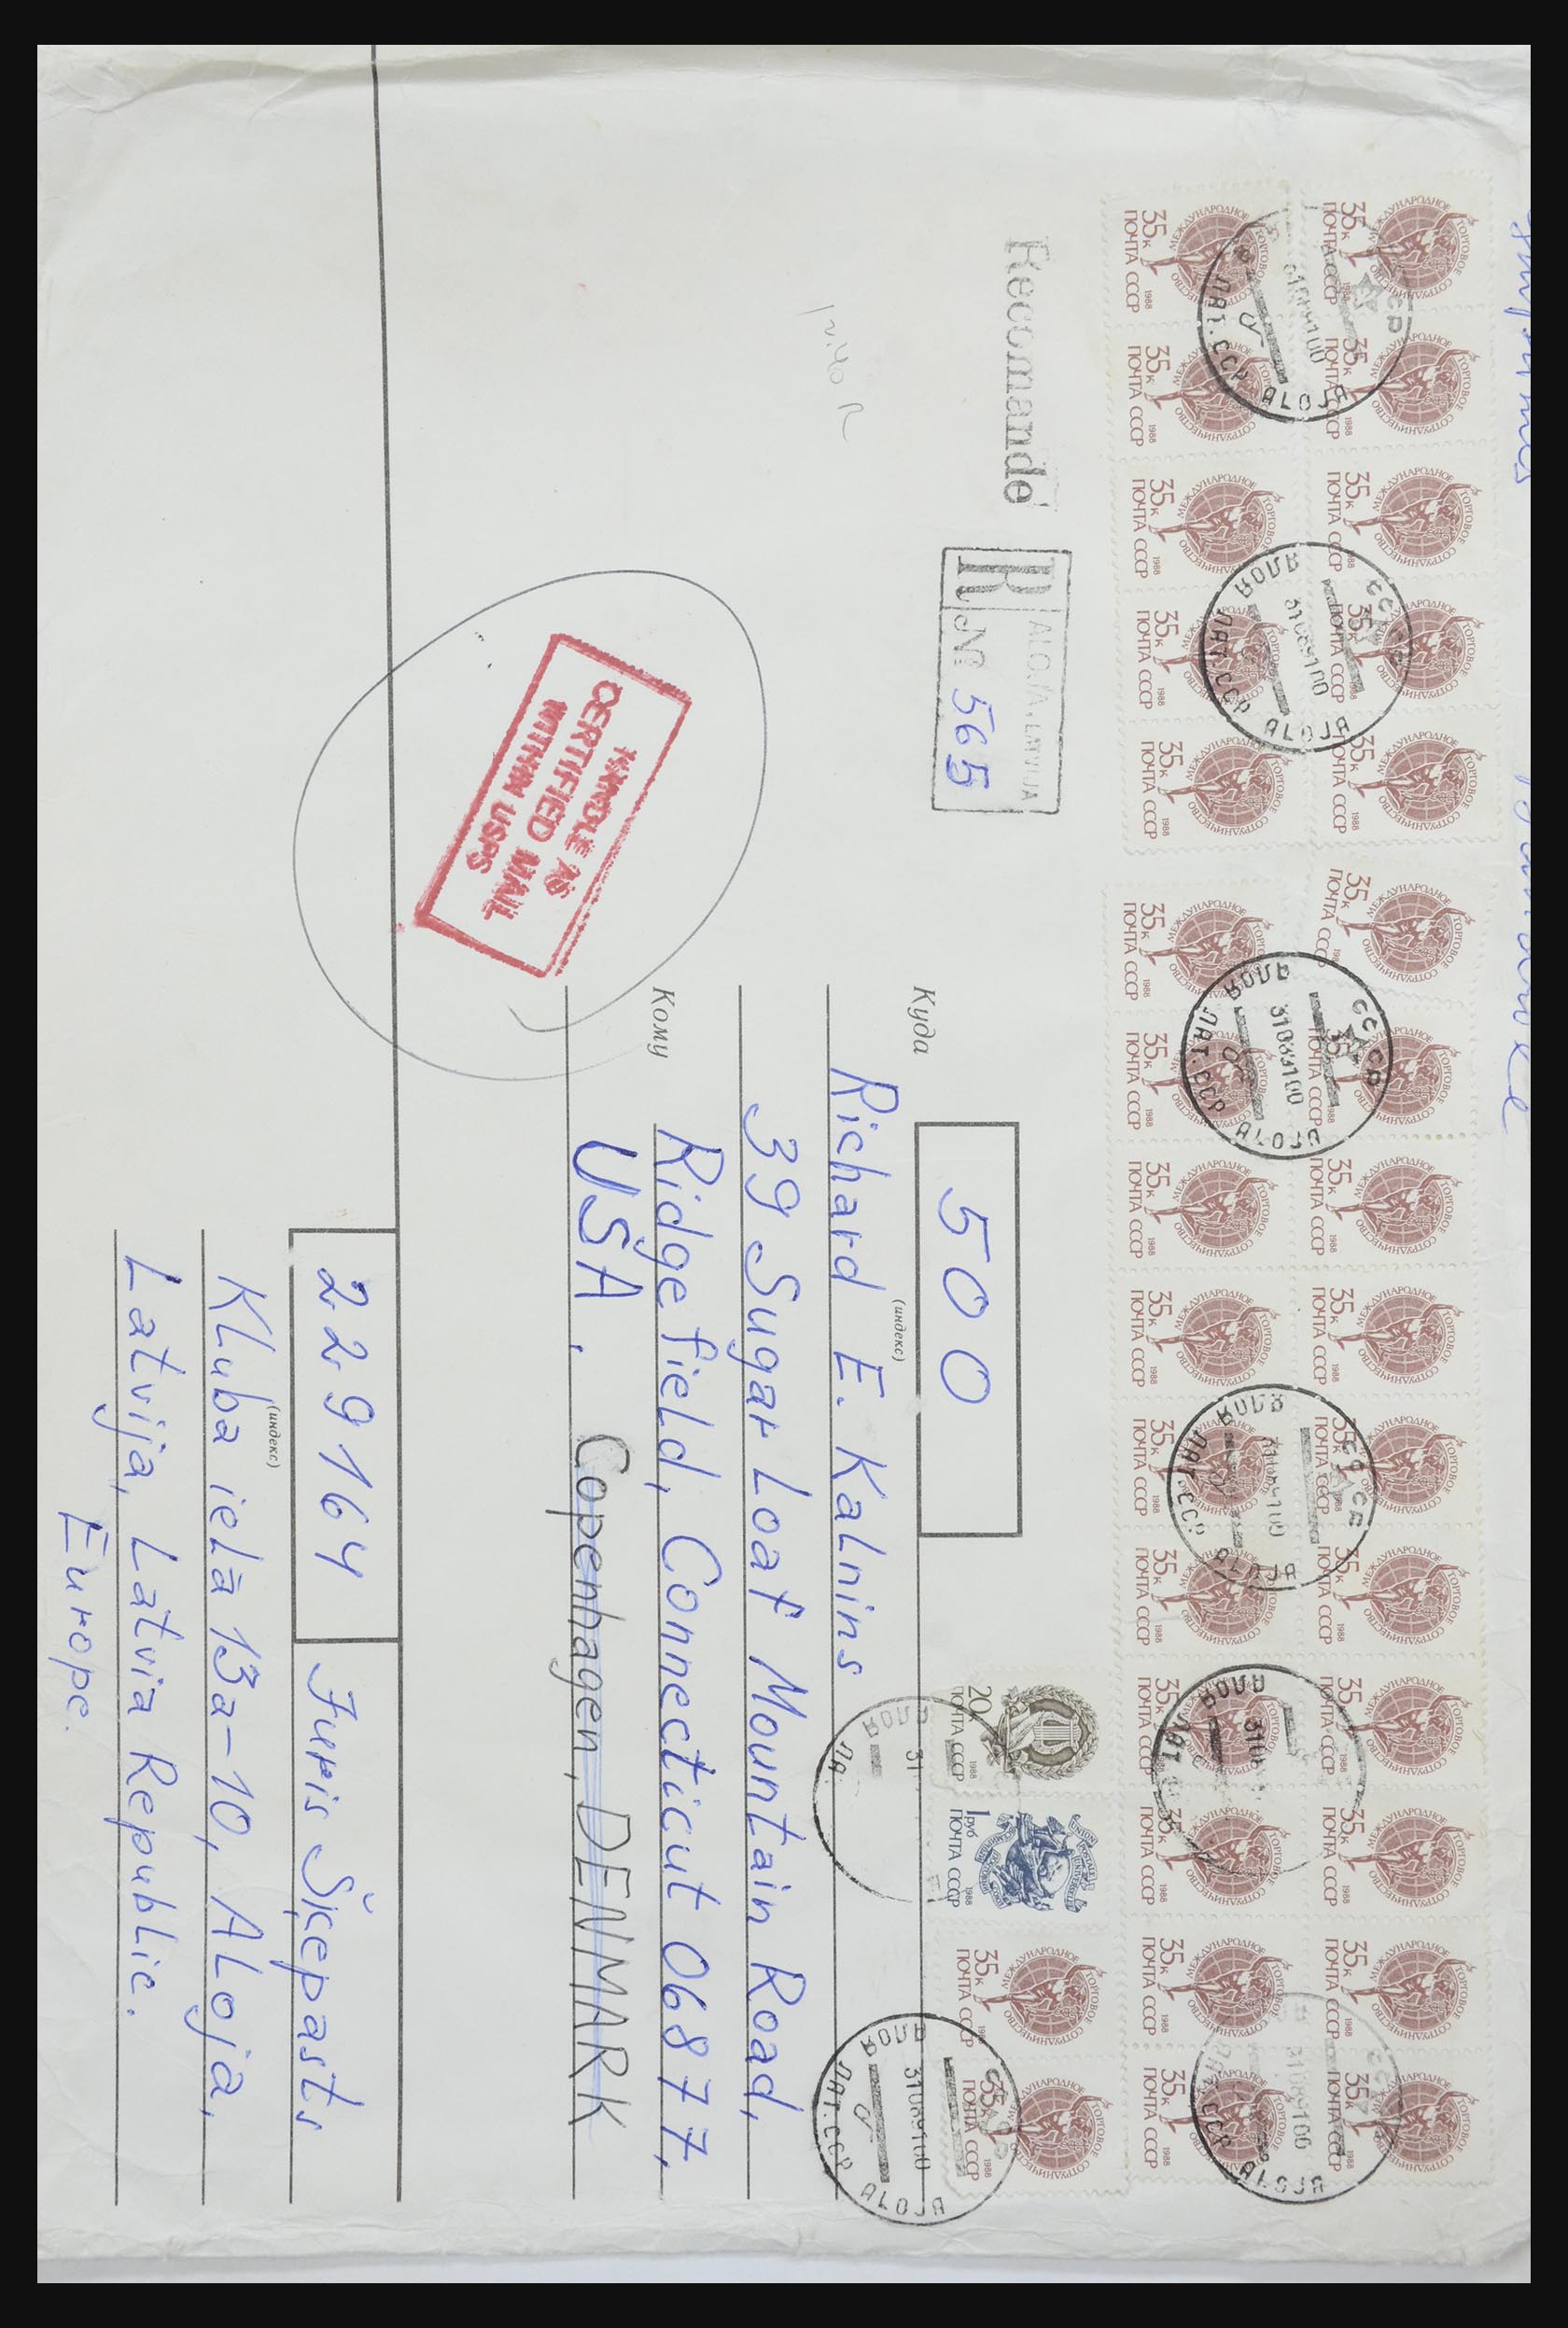 35к
МЕЖДУНАРОДНОЕ ТОРГОВОЕ СОТРУДНИЧЕСТВО
ПОЧТА СССР
1988
СССР
31089100
ALOJA
АЛОЯ
ЛАТ.ССР
20к
ПОЧТА СССР
1988
1руб
ПОЧТА СССР
1988
UNION POSTALE UNIVERSELLE
Recomandé
R
ALOJA, LATVIJA
№ 565
500
(индекс)
Куда
Richard E. Kalnins
39 Sugar Loaf Mountain Road,
Кому
Ridgefield, Connecticut 06877,
USA. Copenhagen, DENMARK
HANDLE AS
CERTIFIED MAIL
WITHIN USPS
229164
(индекс)
Juris Šķepasts
Kluba ielā 13a-10, Aloja,
Latvija, Latvia Republic.
Europe.